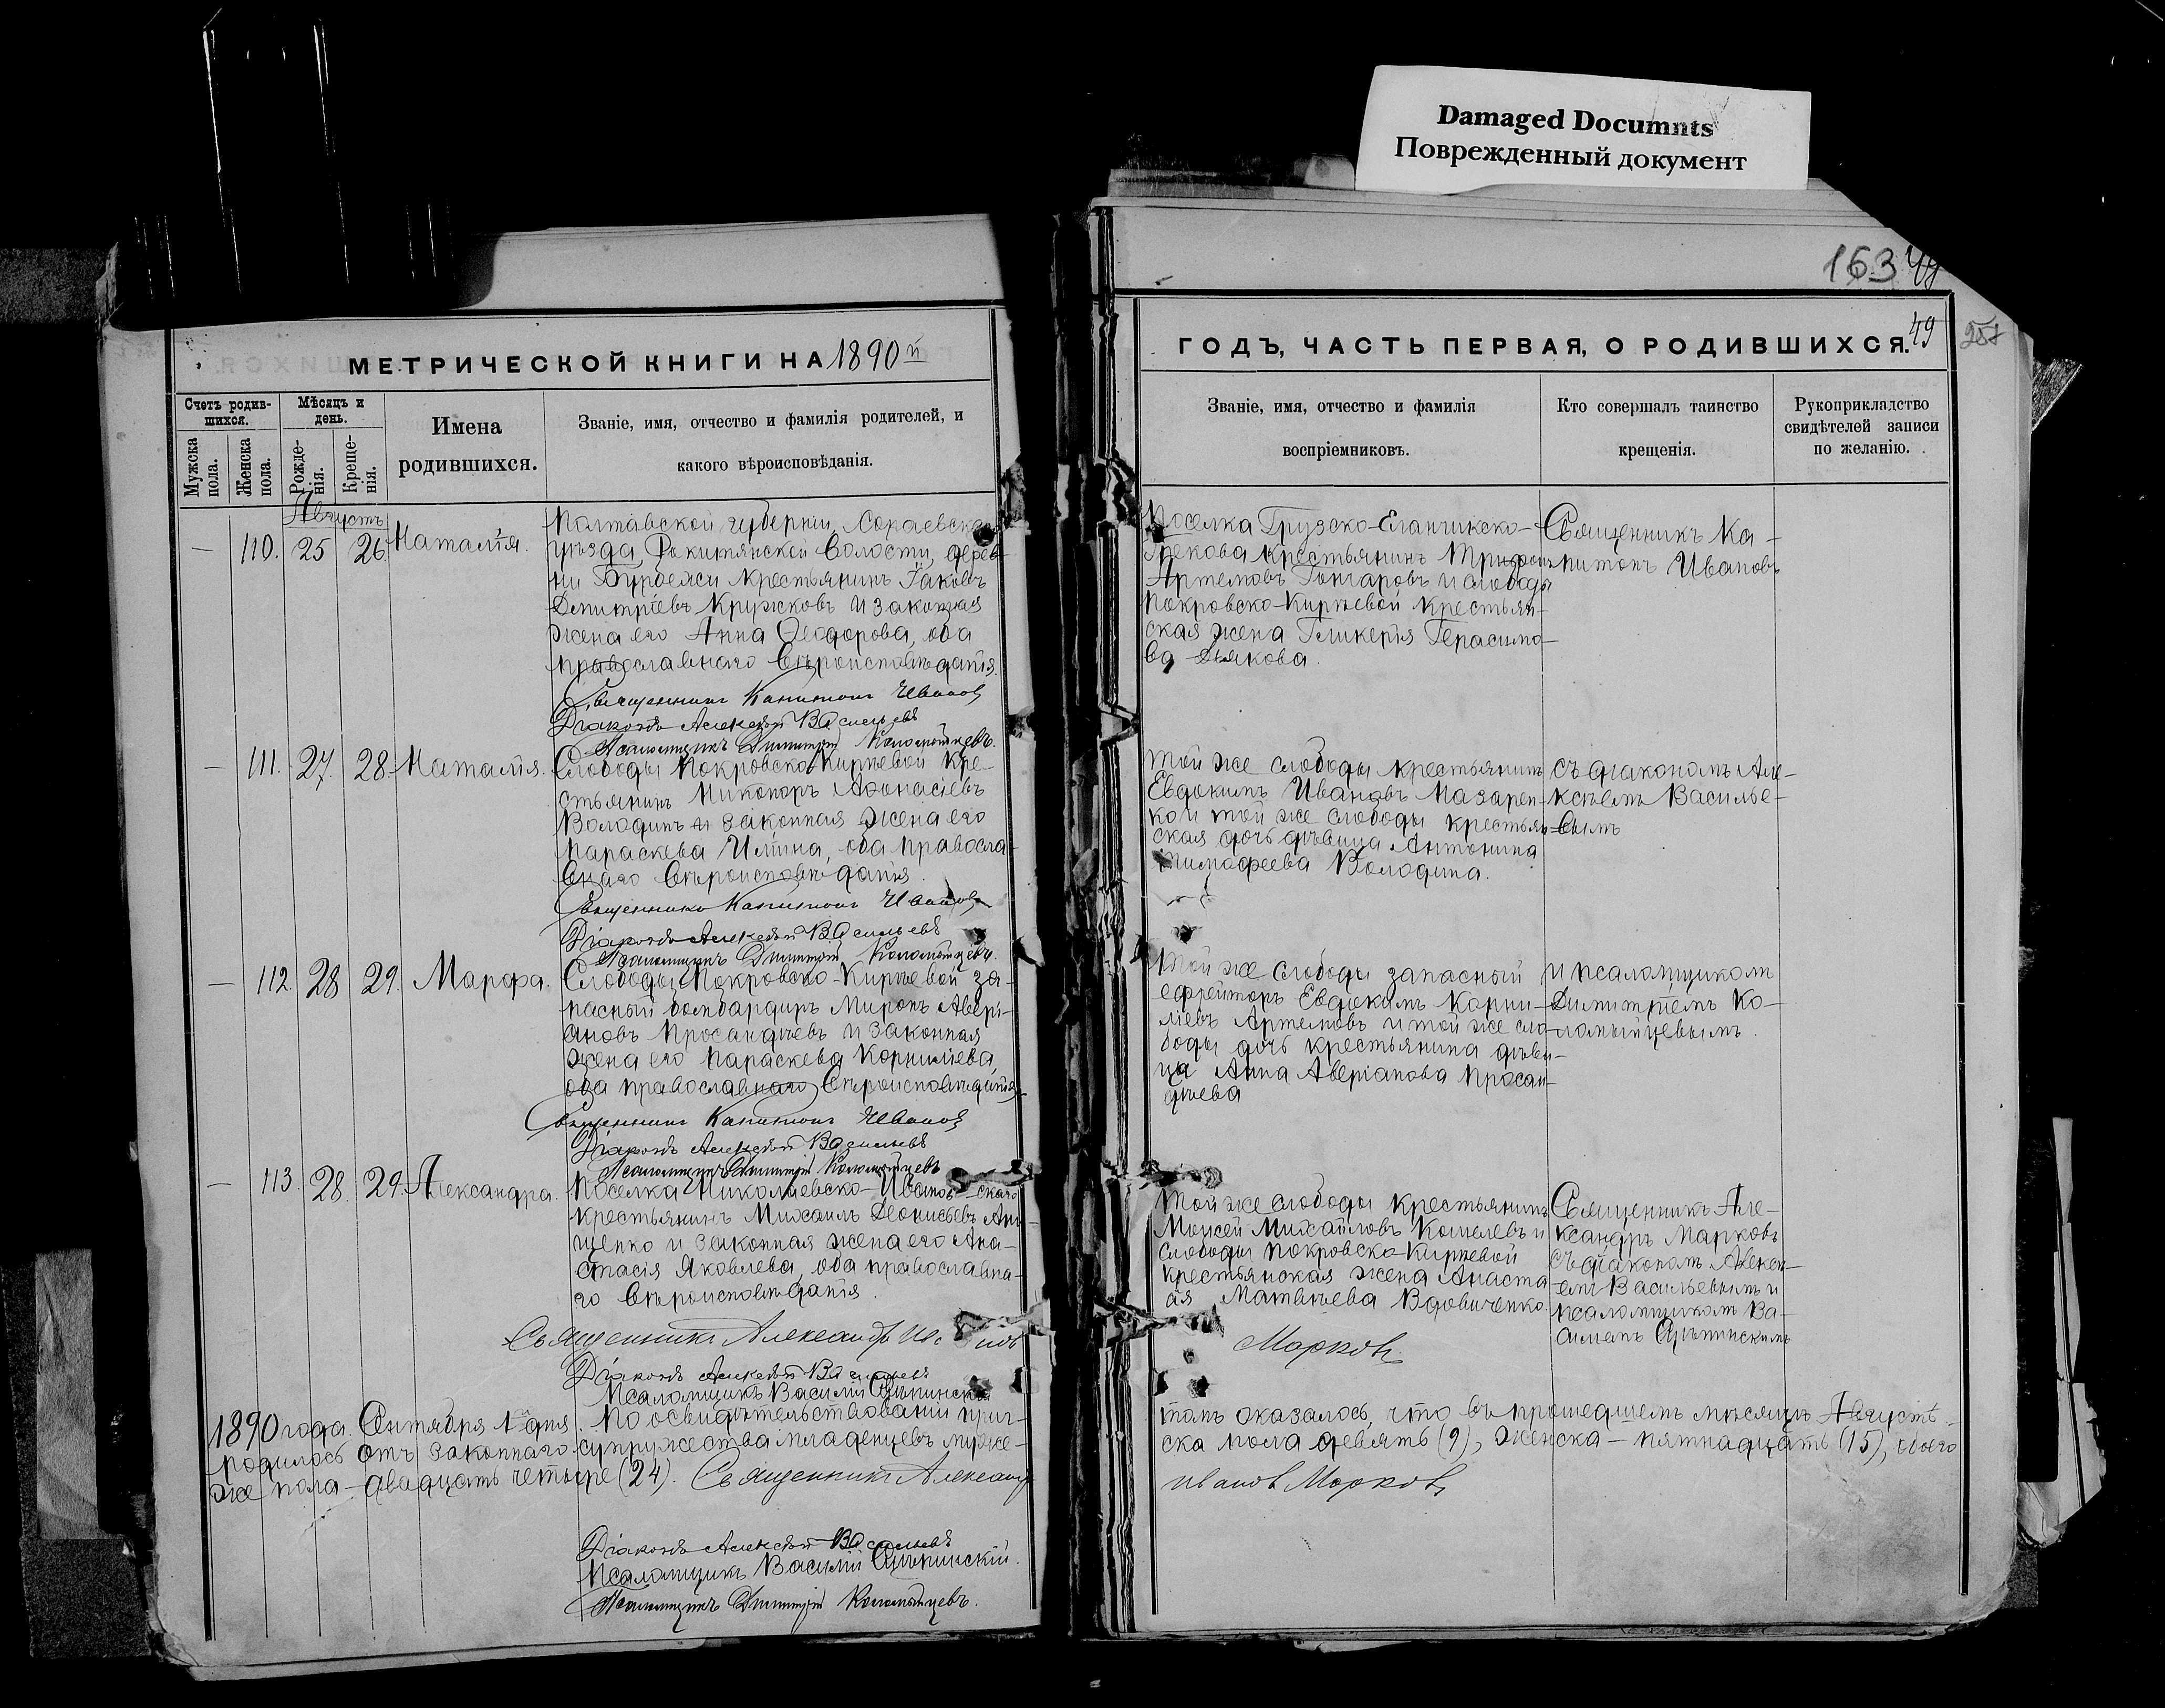 Damaged Documnts
Поврежденный документ
163
49
МЕТРИЧЕСКОЙ КНИГИ НА 1890й
Счетъ родив-
шихся.
Мѣсяцъ и
день.
Мужска
пола.
Женска
пола.
Рожде-
нія.
Креще-
нія.
Имена
родившихся.
Званіе, имя, отчество и фамилія родителей, и
какого вѣроисповѣданія.
Августъ
— 110. 25 26. Наталія.
Полтавской губерніи,
уѣзда, Ракитянской волости, дерев-
ни крестьянинъ Іаковъ
Димитріевъ Кружковъ и законная
жена его Анна Ѳеодорова, оба
православнаго вѣроисповѣданія.
Священникъ Капитонъ Ивановъ
Діаконъ Алексѣй Васильевъ
Псаломщикъ Димитрій Коломыйцевъ.
— 111. 27. 28. Наталія.
Слободы Покровско-Кирѣевой кре-
стьянинъ Никоноръ Аѳонасіевъ
Володинъ и законная жена его
Параскева Иліина, оба правосла-
внаго вѣроисповѣданія.
Священникъ Капитонъ Ивановъ
Діаконъ Алексѣй Васильевъ
Псаломщикъ Димитрій Коломыйцевъ.
— 112. 28 29. Марфа.
Слободы Покровско-Кирѣевой за-
пасный бомбардиръ Миронъ Авері-
ановъ Просандѣевъ и законная
жена его Параскева Корниліева,
оба православнаго вѣроисповѣданія.
Священникъ Капитонъ Ивановъ
Діаконъ Алексѣй Васильевъ
Псаломщикъ Димитрій Коломыйцевъ
— 113. 28. 29. Александра.
Поселка Николаевско-Иванов-скаго
крестьянинъ Михаилъ Діонисьевъ
щенко и законная жена его Ана-
стасія Яковлева, оба православна-
го вѣроисповѣданія.
Священникъ Александръ
Діаконъ Алексѣй Васильевъ
Псаломщикъ Василій
1890 года. Сентября 1 дня. По освидѣтельствованіи
родилось отъ законнаго супружества младенцевъ муже-
же пола — двадцать четыре (24). Священникъ Александръ
Діаконъ Алексѣй Васильевъ
Псаломщикъ Василій
Псаломщикъ Димитрій Коломыйцевъ.
ГОДЪ, ЧАСТЬ ПЕРВАЯ, О РОДИВШИХСЯ.
49
Званіе, имя, отчество и фамилія
воспріемниковъ.
Кто совершалъ таинство
крещенія.
Рукоприкладство
свидѣтелей записи
по желанію.
Поселка Грузско-Еланчикско-
Грекова крестьянинъ
Артемовъ Гончаровъ и слободы
Покровско-Кирѣевой крестьян-
ская жена Гликерія Герасимо-
ва Дьякова.
Священникъ Ка-
питонъ Ивановъ
Той же слободы крестьянинъ
Евдокимъ Ивановъ Назарен-
ко и той же слободы крестьян-
ская дочь дѣвица Антонина
Тимофеева Володина.
съ діакономъ Але-
ксѣемъ Василье-
вымъ
Той же слободы запасный
ефрейторъ Евдокимъ Корни-
ліевъ Артемовъ и той же сло-
боды дочь крестьянина дѣви-
ца Анна Аверіанова Просан-
дѣева
и псаломщикомъ
Димитріемъ Ко-
ломыйцевымъ.
Той же слободы крестьянинъ
Моисей Михайловъ Кошелевъ и
слободы Покровско-Кирѣевой
крестьянская жена Анаста
ія Матвѣева Вдовиченко.
Священникъ Але-
ксандръ Марковъ
съ діакономъ Алексѣ-
емъ Васильевымъ и
псаломщикомъ Ва-
Марковъ.
томъ оказалось, что въ прошедшемъ мѣсяцѣ Августѣ
ска пола девять (9), женска — пятнадцать (15), обоего
ивановъ Марковъ